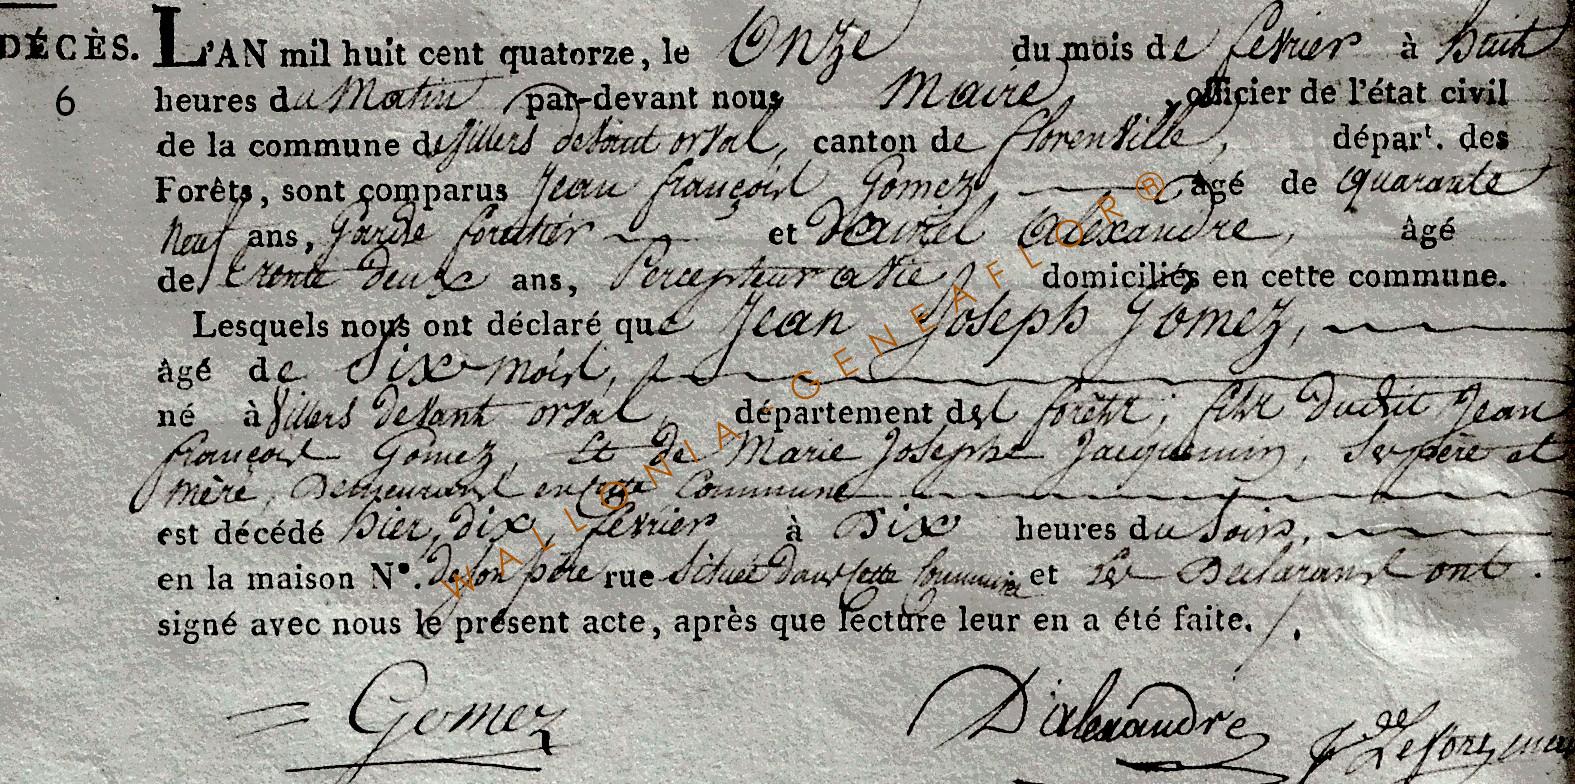 DÉCÈS. L'AN mil huit cent quatorze, le Onze du mois de fevrier à huit
6 heures du Matin par-devant nous Maire, officier de l'état civil
de la commune de Villers devant orval, canton de florenville, départ. des
Forêts, sont comparus Jean françois Gomez, âgé de quarante
Neuf ans, Garde forestier et Daniel Alexandre, âgé
de trente deux ans, Percepteur domiciliés en cette commune.
Lesquels nous ont déclaré que Jean Joseph Gomez,
âgé de Six mois,
né à Villers devant orval, département des forêts, fils dudit Jean
françois Gomez, Et de Marie Josephe Jacquemin, Ses père et
mère, Demeurant en cette Commune
est décédé hier, dix, fevrier à Dix heures du Soir,
en la maison N°. de son père rue Située dans cette Commune et Les Declarans ont
signé avec nous le présent acte, après que lecture leur en a été faite.
Gomez D'alexandre
WALLONIA-GENEAFLOR®